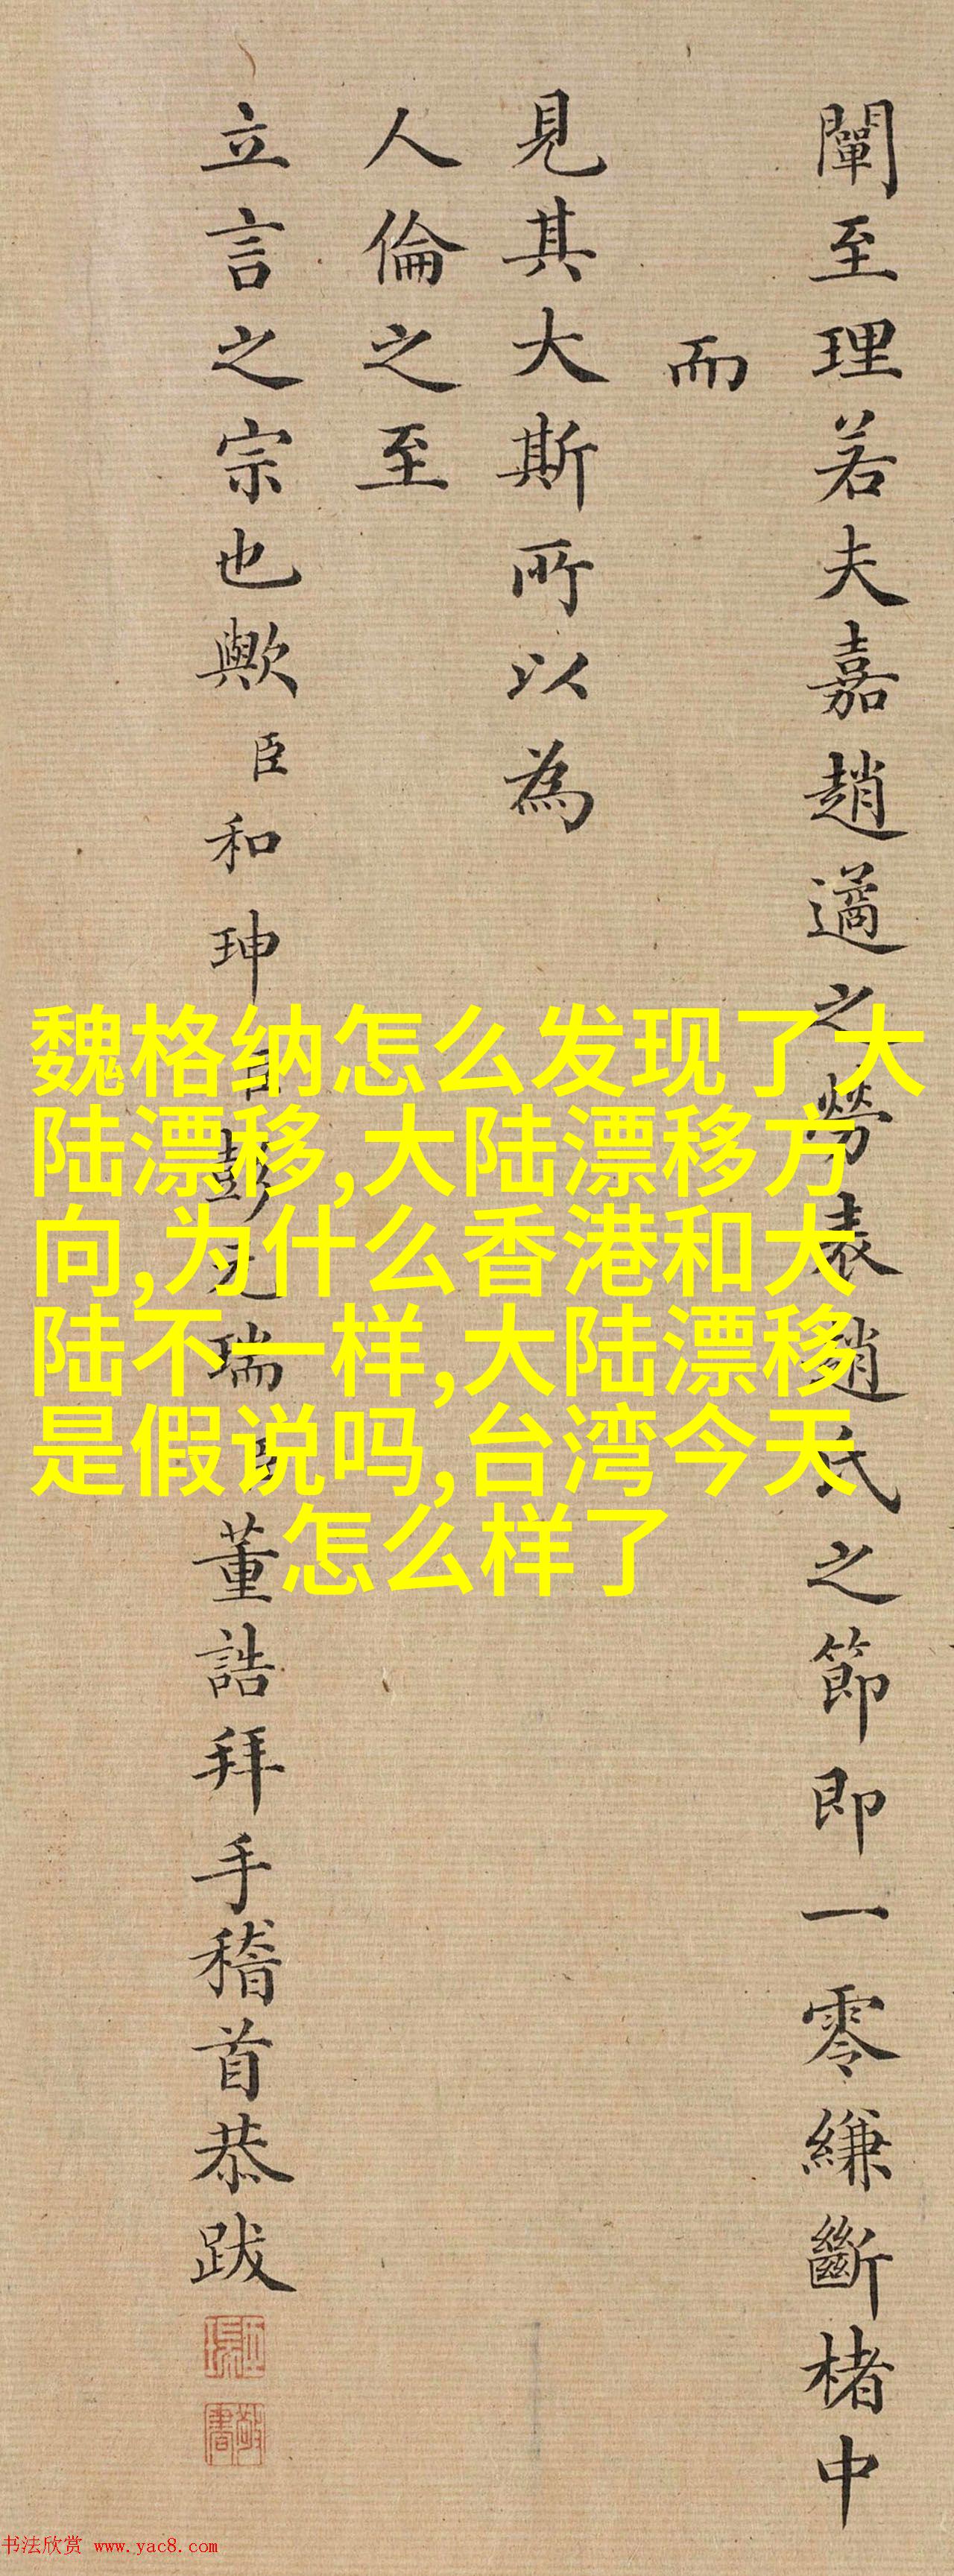 闡至理若夫嘉趙薖之勞表趙氏之節即一零縑斷楮中
而
見其大斯所以為
人倫之至
立言之宗也歟臣和珅臣彭元瑞臣董誥拜手稽首恭跋
魏格纳怎么发现了大
陆漂移,大陆漂移方
向,为什么香港和大
陆不一样,大陆漂移
是假说吗,台湾今天
怎么样了
书法欣赏 www.yac8.com